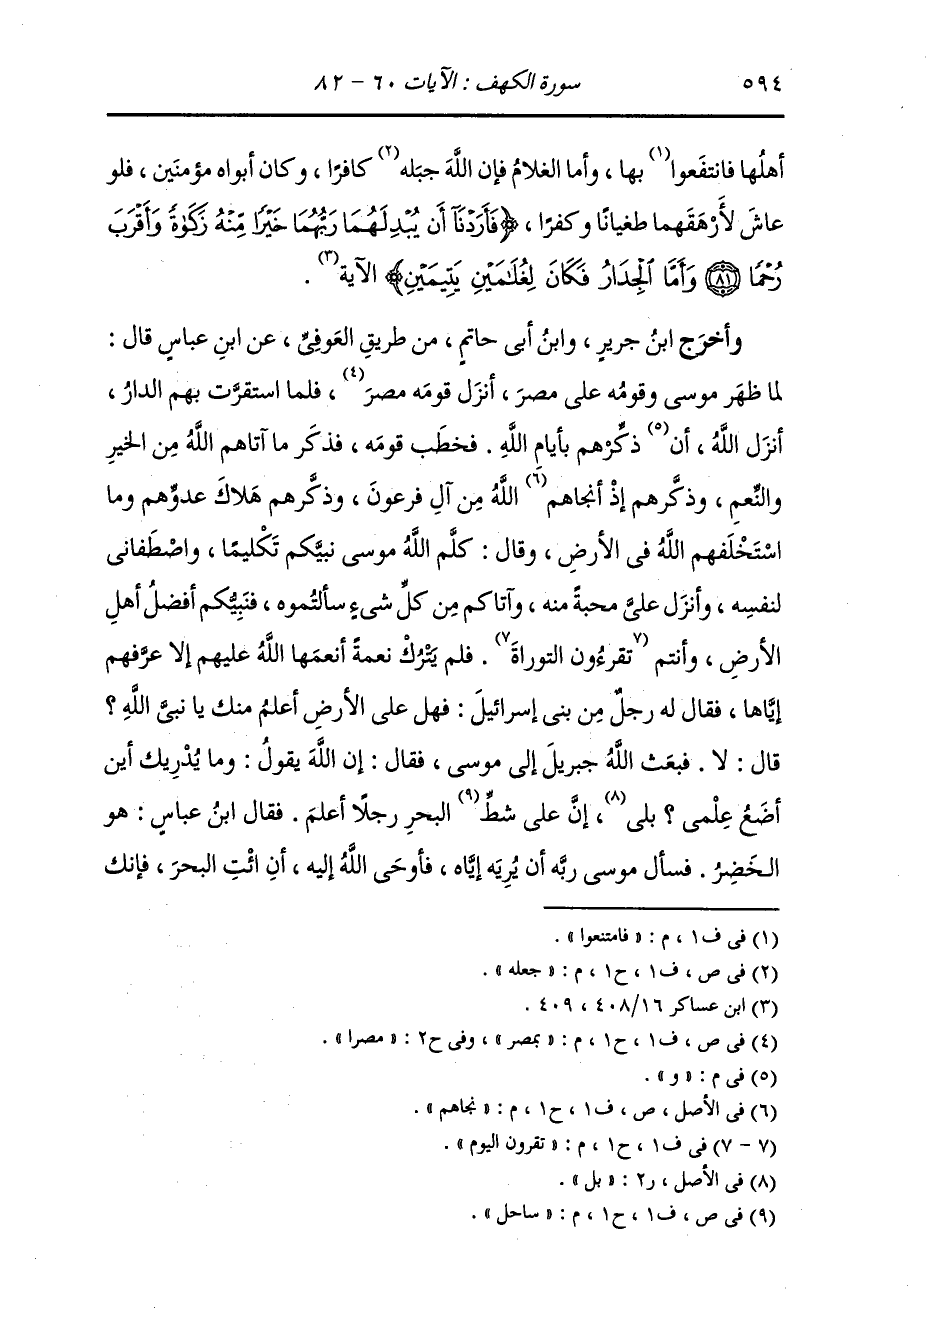 ٥٩٤ سورة الكهف : الآيات ٦٠ – ٨٢
أهلُها فانتفَعوا(١) بها ، وأما الغلامُ فإن اللَّهَ جبَله(٢) كافرًا ، وكان أبواه مؤمنَين ، فلو
عاشَ لأَرْهَقَهما طغيانًا وكفرًا ، ﴿فَأَرَدْنَآ أَن يُبْدِلَهُمَا رَبُّهُمَا خَيْرًا مِّنْهُ زَكَوٰةً وَأَقْرَبَ
رُحْمًا ﴿٨١﴾ وَأَمَّا ٱلْجِدَارُ فَكَانَ لِغُلَـٰمَيْنِ يَتِيمَيْنِ﴾ الآية(٣) .
وأخرَج ابنُ جريرٍ ، وابنُ أبى حاتمٍ ، من طريقِ العَوفىِّ ، عن ابنِ عباسٍ قال :
لما ظهَر موسى وقومُه على مصرَ ، أنزَل قومَه مصرَ(٤) ، فلما استقرَّت بهم الدارُ ،
أنزَل اللَّهُ ، أن(٥) ذكِّرْهم بأيامِ اللَّهِ . فخطَب قومَه ، فذكَر ما آتاهم اللَّهُ مِن الخيرِ
والنِّعمِ ، وذكَّرهم إذْ أنجاهم(٦) اللَّهُ مِن آلِ فرعونَ ، وذكَّرهم هَلاكَ عدوِّهم وما
اسْتَخْلَفهم اللَّهُ فى الأرضِ ، وقال : كلَّم اللَّهُ موسى نبيَّكم تَكْليمًا ، واصْطَفانى
لنفسِه ، وأنزَل علىَّ محبةً منه ، وآتاكم مِن كلِّ شىءٍ سألتُموه ، فنَبِيُّكم أفضلُ أهلِ
الأرضِ ، وأنتم (٧تقرءُون التوراةَ٧) . فلم يَتْرُكْ نعمةً أنعمَها اللَّهُ عليهم إلا عرَّفهم
إيَّاها ، فقال له رجلٌ مِن بنى إسرائيلَ : فهل على الأرضِ أعلمُ منك يا نبىَّ اللَّهِ ؟
قال : لا . فبعَث اللَّهُ جبريلَ إلى موسى ، فقال : إن اللَّهَ يقولُ : وما يُدْرِيك أين
أضَعُ عِلْمى ؟ بلى(٨) ، إنَّ على شطِّ(٩) البحرِ رجلًا أعلمَ . فقال ابنُ عباسٍ : هو
الخَضِرُ . فسأل موسى ربَّه أن يُرِيَه إيَّاه ، فأوحَى اللَّهُ إليه ، أنِ ائْتِ البحرَ ، فإنك
(١) فى ف١ ، م : « فامتنعوا » .
(٢) فى ص ، ف١ ، ح١ ، م : « جعله » .
(٣) ابن عساكر ٤٠٨/١٦ ، ٤٠٩ .
(٤) فى ص ، ف١ ، ح١ ، م : « بمصر » ، وفى ح٢ : « مصرا » .
(٥) فى م : « و » .
(٦) فى الأصل ، ص ، ف١ ، ح١ ، م : « نجاهم » .
(٧ – ٧) فى ف١ ، ح١ ، م : « تقرون اليوم » .
(٨) فى الأصل ، ر٢ : « بل » .
(٩) فى ص ، ف١ ، ح١ ، م : « ساحل » .